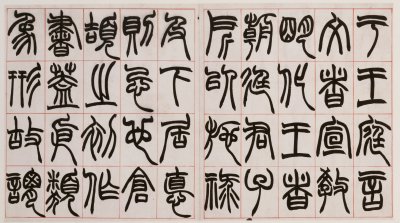 于王庭言
文者宣教
明化王者
朝廷君子
所以施祿
及下居悳
則忌也倉
頡之初作
書蓋依類
象形故謂